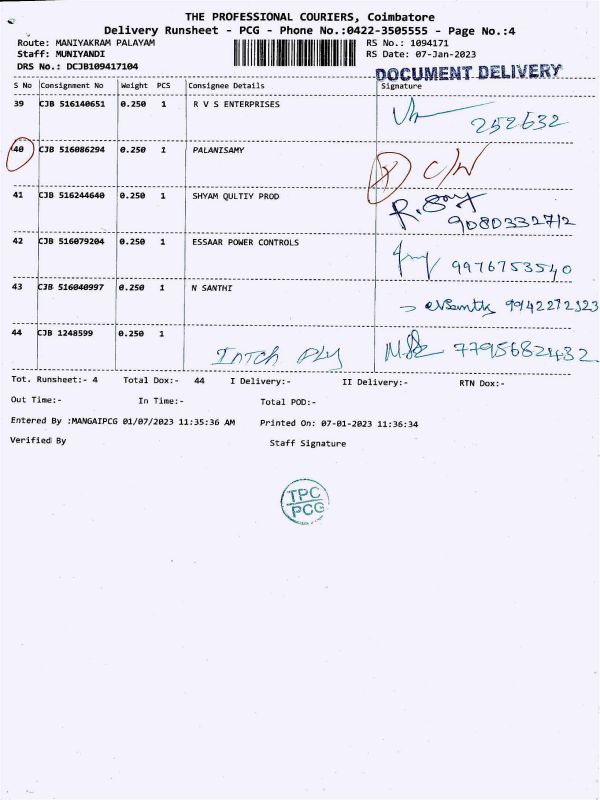 THE PROFESSIONAL COURIERS, Coimbatore
Delivery Runsheet - PCG - Phone No.:0422-3505555 - Page No.:4
Route: MANIYAKRAM PALAYAM RS No.: 1094171
Staff: MUNIYANDI RS Date: 07-Jan-2023
DRS No.: DCJB109417104 DOCUMENT DELIVERY
S No Consignment No Weight PCS Consignee Details Signature
39 CJB 516140651 0.250 1 R V S ENTERPRISES
252632
40 CJB 516086294 0.250 1 PALANISAMY C/N
41 CJB 516244640 0.250 1 SHYAM QULTIY PROD
9080332712
42 CJB 516079204 0.250 1 ESSAAR POWER CONTROLS
9976753540
43 CJB 516040997 0.250 1 N SANTHI
9942272323
44 CJB 1248599 0.250 1
INTCH PLY 7795682432
Tot. Runsheet:- 4 Total Dox:- 44 I Delivery:- II Delivery:- RTN Dox:-
Out Time:- In Time:- Total POD:-
Entered By :MANGAIPCG 01/07/2023 11:35:36 AM Printed On: 07-01-2023 11:36:34
Verified By Staff Signature
TPC
PCG